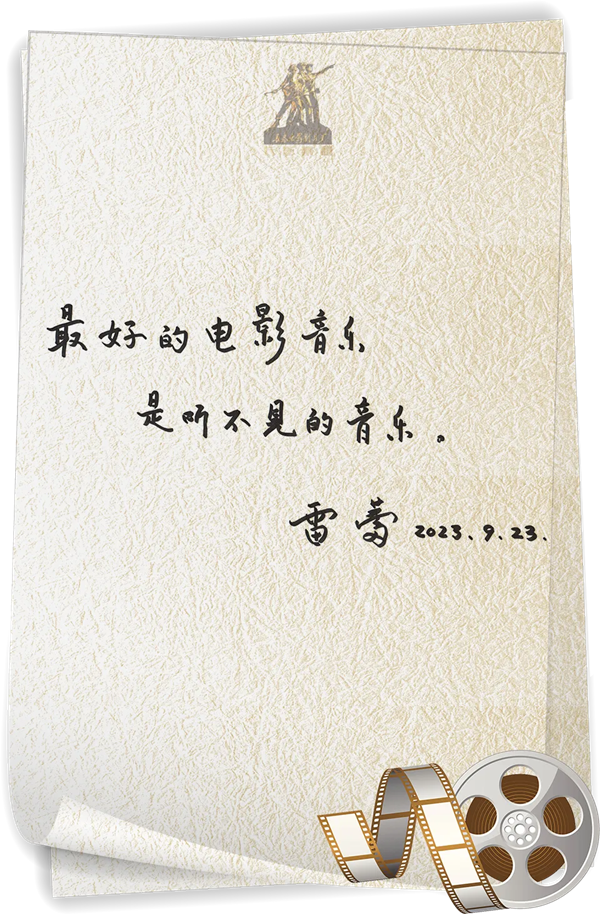 最好的电影音乐
是听不见的音乐。
雷蕾 2023.9.23.